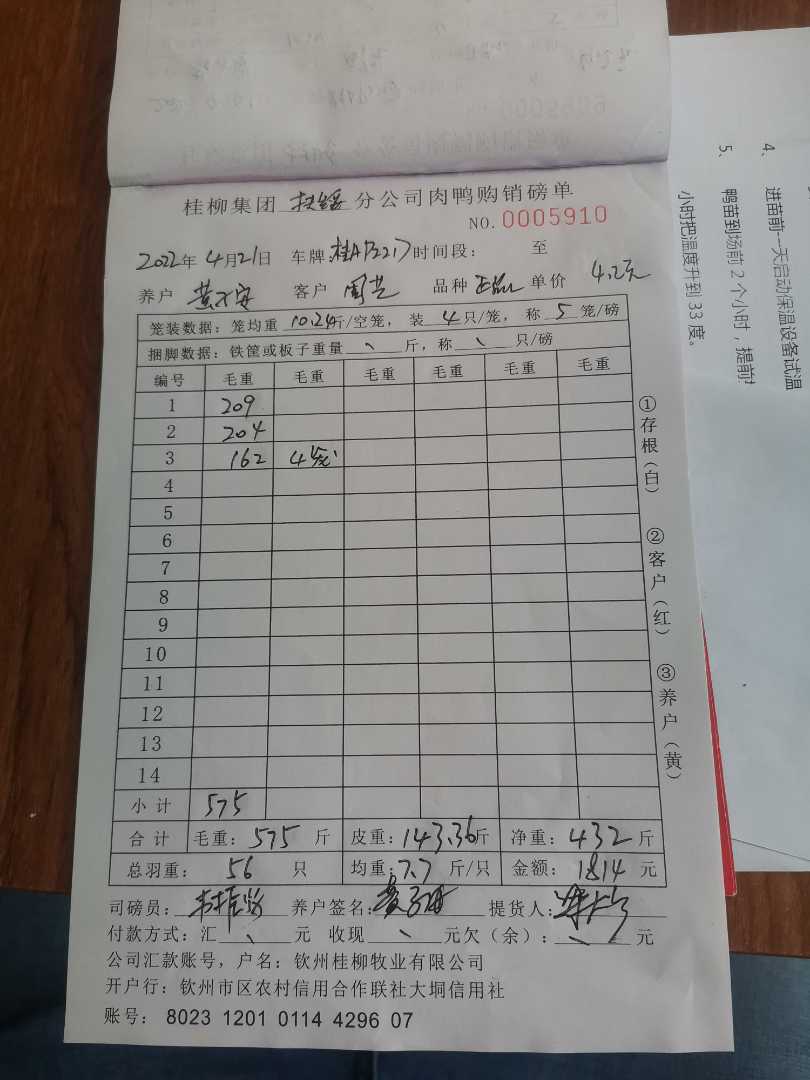 桂柳集团 扶绥 分公司肉鸭购销磅单
NO.0005910
2022年4月21日 车牌: 时间段: 至
养户 客户 品种 正品 单价 4.2元
笼装数据: 笼均重 10.24斤/空笼, 装 4 只/笼, 称 5 笼/磅
捆脚数据: 铁筐或板子重量 斤, 称 只/磅
编号 毛重 毛重 毛重 毛重 毛重 毛重
1 209
2 204
3 162 4笼
4
5
6
7
8
9
10
11
12
13
14
小计 575
合计 毛重: 575 斤 皮重: 143.36斤 净重: 432 斤
总羽重: 56 只 均重: 7.7 斤/只 金额: 1814 元
司磅员: 养户签名: 提货人:
付款方式: 汇 元 收现 元欠(余): 元
公司汇款账号, 户名: 钦州桂柳牧业有限公司
开户行: 钦州市区农村信用合作联社大垌信用社
账号: 8023 1201 0114 4296 07
①存根(白) ②客户(红) ③养户(黄)
4、 进苗前一天启动保温设备试温
5、 鸭苗到场前 2 个小时, 提前
小时把温度升到 33 度。